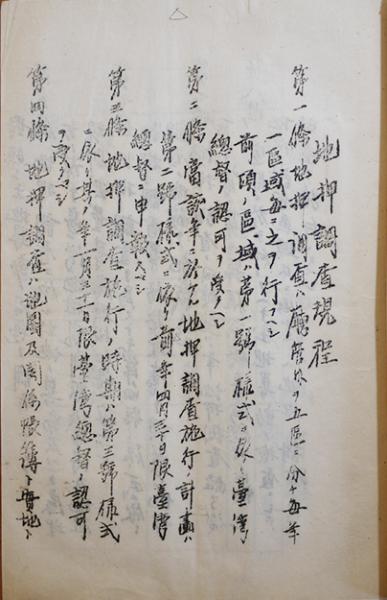 地押調査規程
第一條 地押調査ハ廳管內ヲ五區ニ分チ每年
一區域每ニ之ヲ行フヘシ
前項ノ區域ハ第一號樣式ニ依リ臺灣
總督ノ認可ヲ受クヘシ
第二條 當該年ニ於ケル地押調查施行ノ計畫ハ
第二號樣式ニ依リ前年四月三十日限臺灣
總督ニ申報スヘシ
第三條 地押調查施行ノ時期ハ第三號樣式
ニ依リ其ノ年一月三十一日限臺灣總督ノ認可
ヲ受クヘシ
第四條 地押調查ハ地圖及關係帳簿ト實地ト